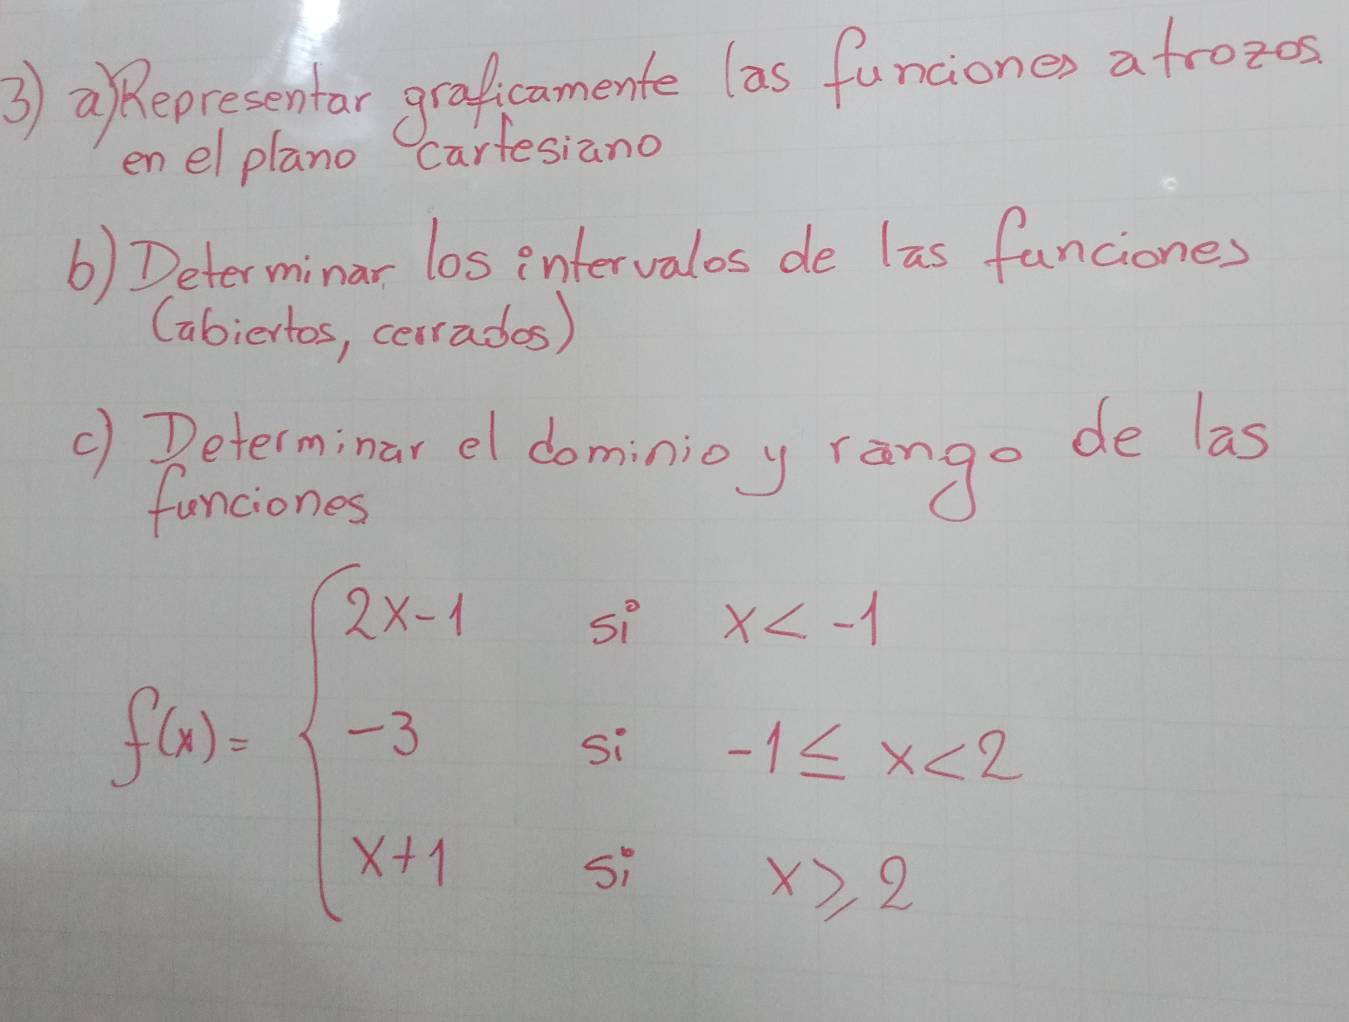 3) a) Representar graficamente las funciones a trozos
en el plano cartesiano
b) Determinar los intervalos de las funciones
(abiertos, cerrados)
c) Determinar el dominio y rango de las
funciones
2x-1 si x < -1
f(x) = { -3 si -1 ≤ x < 2
x+1 si x ⩾ 2